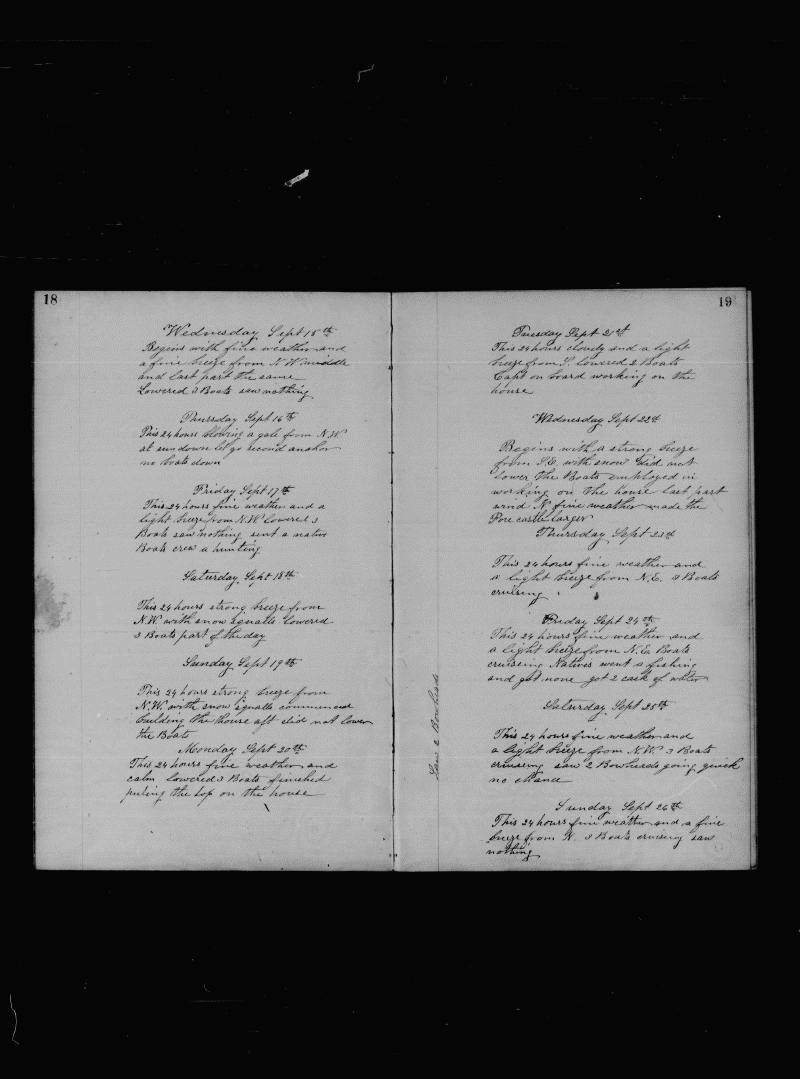 18
Wednesday Sept 15th
Begins with fine weather and
a fine breeze from N.W. middle
and last part the same
Lowered 3 Boats saw nothing
Thursday Sept 16th
This 24 hours blowing a gale from N.W.
at sundown let go second anchor
no boats down
Friday Sept 17th
This 24 hours fine weather and a
light breeze from N.W. lowered 3
Boats saw nothing sent a native
Boats crew a hunting
Saturday Sept 18th
This 24 hours strong breeze from
N.W. with snow squalls lowered
3 Boats part of the day
Sunday Sept 19th
This 24 hours strong breeze from
N.W. with snow squalls commenced
building the house aft did not lower
the Boats
Monday Sept 20th
This 24 hours fine weather and
calm lowered 3 Boats finished
puting the top on the house
19
Tuesday Sept 21st
This 24 hours cloudy and a light
breeze from S. lowered 2 Boats
Capt on board working on the
house
Wednesday Sept 22d
Begins with a strong breeze
from S.E. with snow did not
lower the Boats employed in
working on the house last part
wind N fine weather made the
Fore castle larger
Thursday Sept 23d
This 24 hours fine weather and
a light breeze from N.E. 3 Boats
cruising
Friday Sept 24th
This 24 hours fine weather and
a light breeze from N.E. Boats
cruising Natives went a fishing
and got none got 2 cask of water
Saturday Sept 25th
This 24 hours fine weather and
a light breeze from N.W. 3 Boats
cruising saw 2 Bowheads going quick
no chance
Saw 2 Bowheads
Sunday Sept 26th
This 24 hours fine weather and a fine
breeze from N. 3 Boats cruising saw
nothing